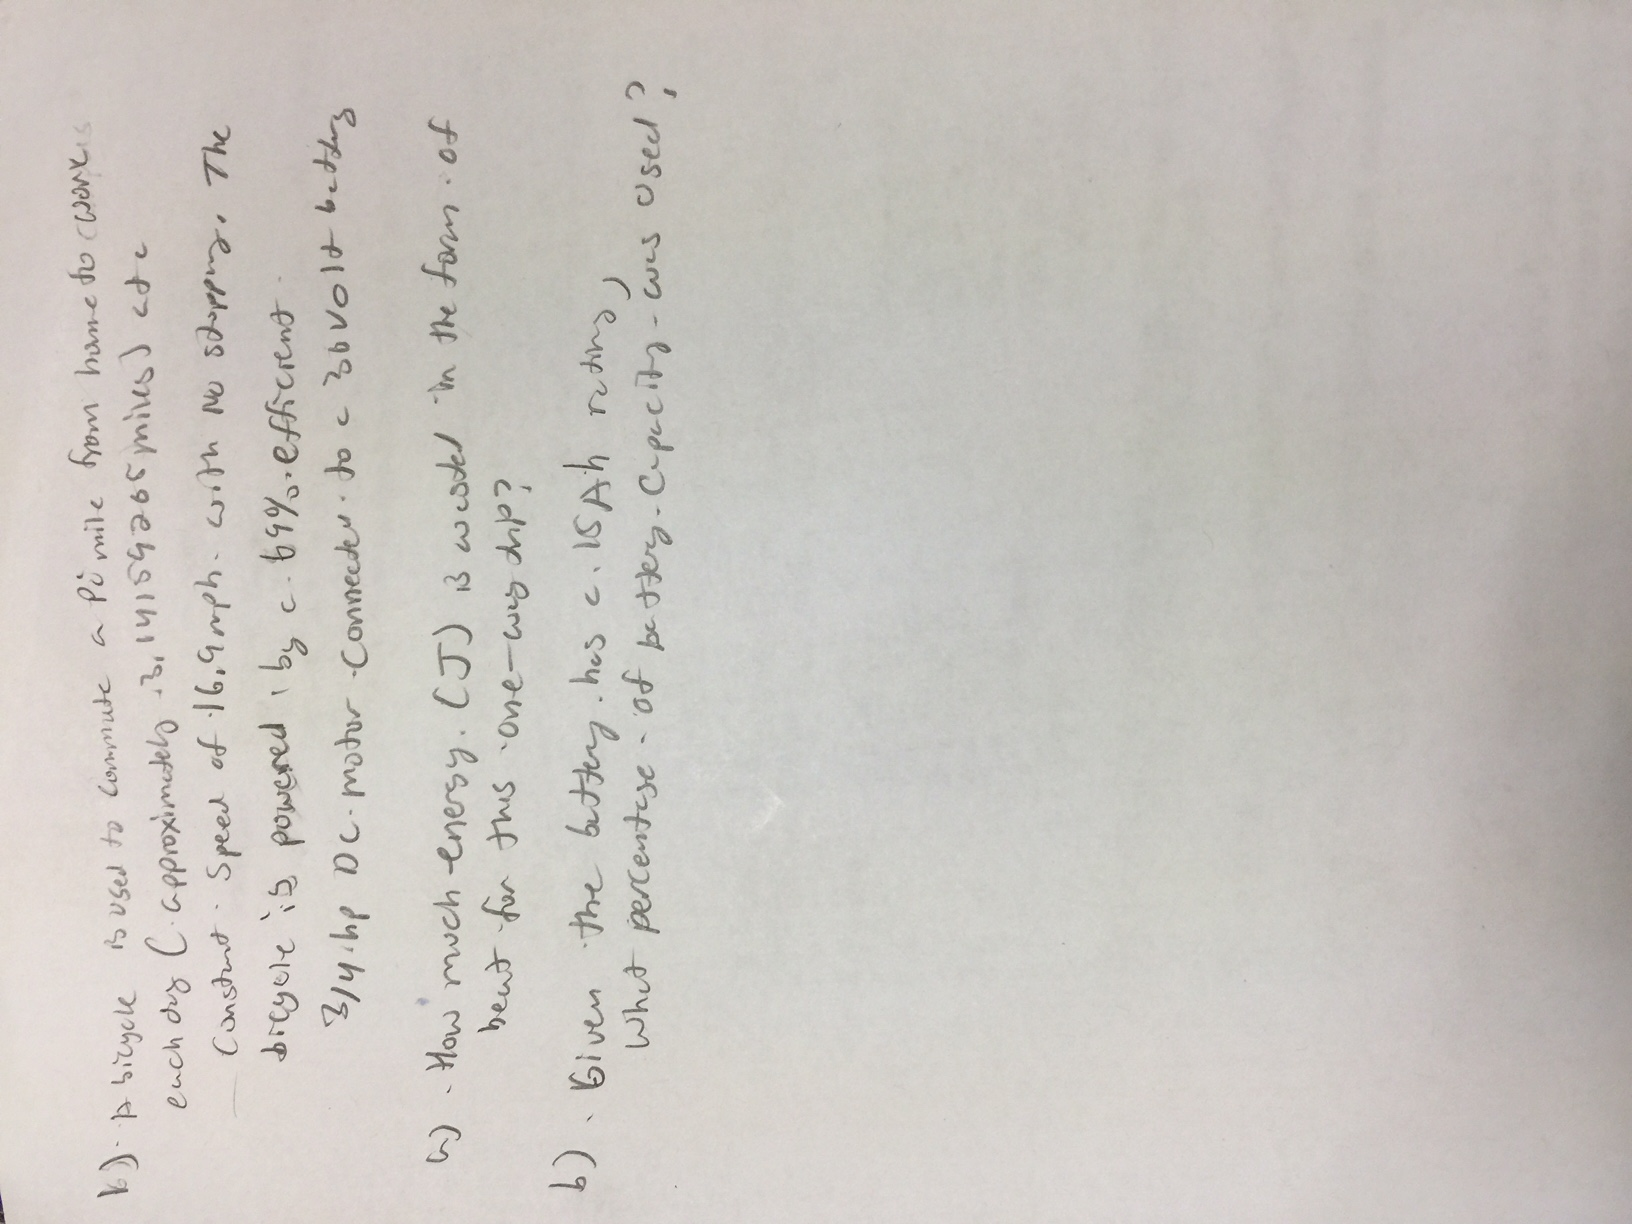 b). A bicycle is used to commute a Pi mile from home to work
each day (approximately 3.14159265 miles) at a
constant speed of 16.9 mph with no stopping. The
bicycle is powered by a 69% efficient
3/4 hp DC motor connected to a 36 volt battery
a) How much energy (J) is wasted in the form of
heat for this one-way trip?
b). Given the battery has a 15 Ah rating,
what percentage of battery capacity was used?